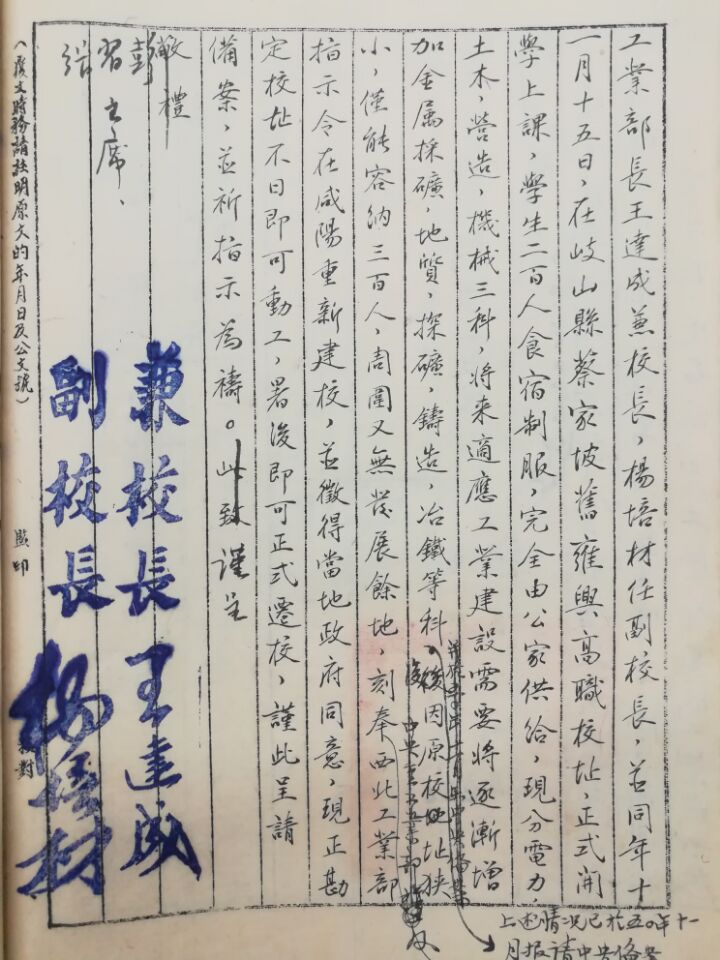 工業部長王達成兼校長，楊培材任副校長，並同年十
一月十五日，在岐山縣蔡家坡舊雍興高職校址，正式開
學上課，學生二百人食宿制服，完全由公家供給，現分電力，
土木，營造，機械三科，将来適應工業建設需要将逐漸增
加金属採礦，地質，探礦，鑄造，冶鐵等科，後因原校址狭
小，僅能容納三百人，周圍又無發展餘地，刻奉西北工業部
指示令在咸陽重新建校，並徵得當地政府同意，現正勘
定校址不日即可動工，暑後即可正式遷校，謹此呈請
備案，並祈指示為禱。此致 謹呈
敬禮
彭
習 主席、
張
兼校長王達成
副校長楊培材
（覆文時務請註明原文的年月日及公文號）
監印
校對
上述情况已於五〇年十一
月报請中央備案